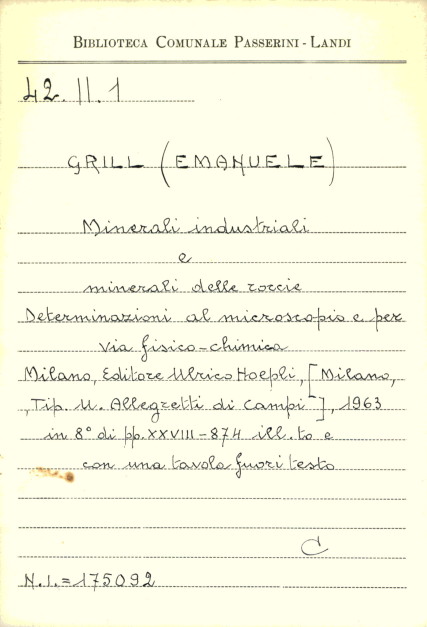 BIBLIOTECA COMUNALE PASSERINI - LANDI
42. II. 1
GRILL (EMANUELE)
Minerali industriali
e
minerali delle roccie
Determinazioni al microscopio e per
via fisico-chimica
Milano, Editore Ulrico Hoepli, [Milano,
Tip. U. Allegretti di Campi], 1963
in 8° di pp. XXVIII-874 ill.to e
con una tavola fuori testo
C
N.I. = 175092